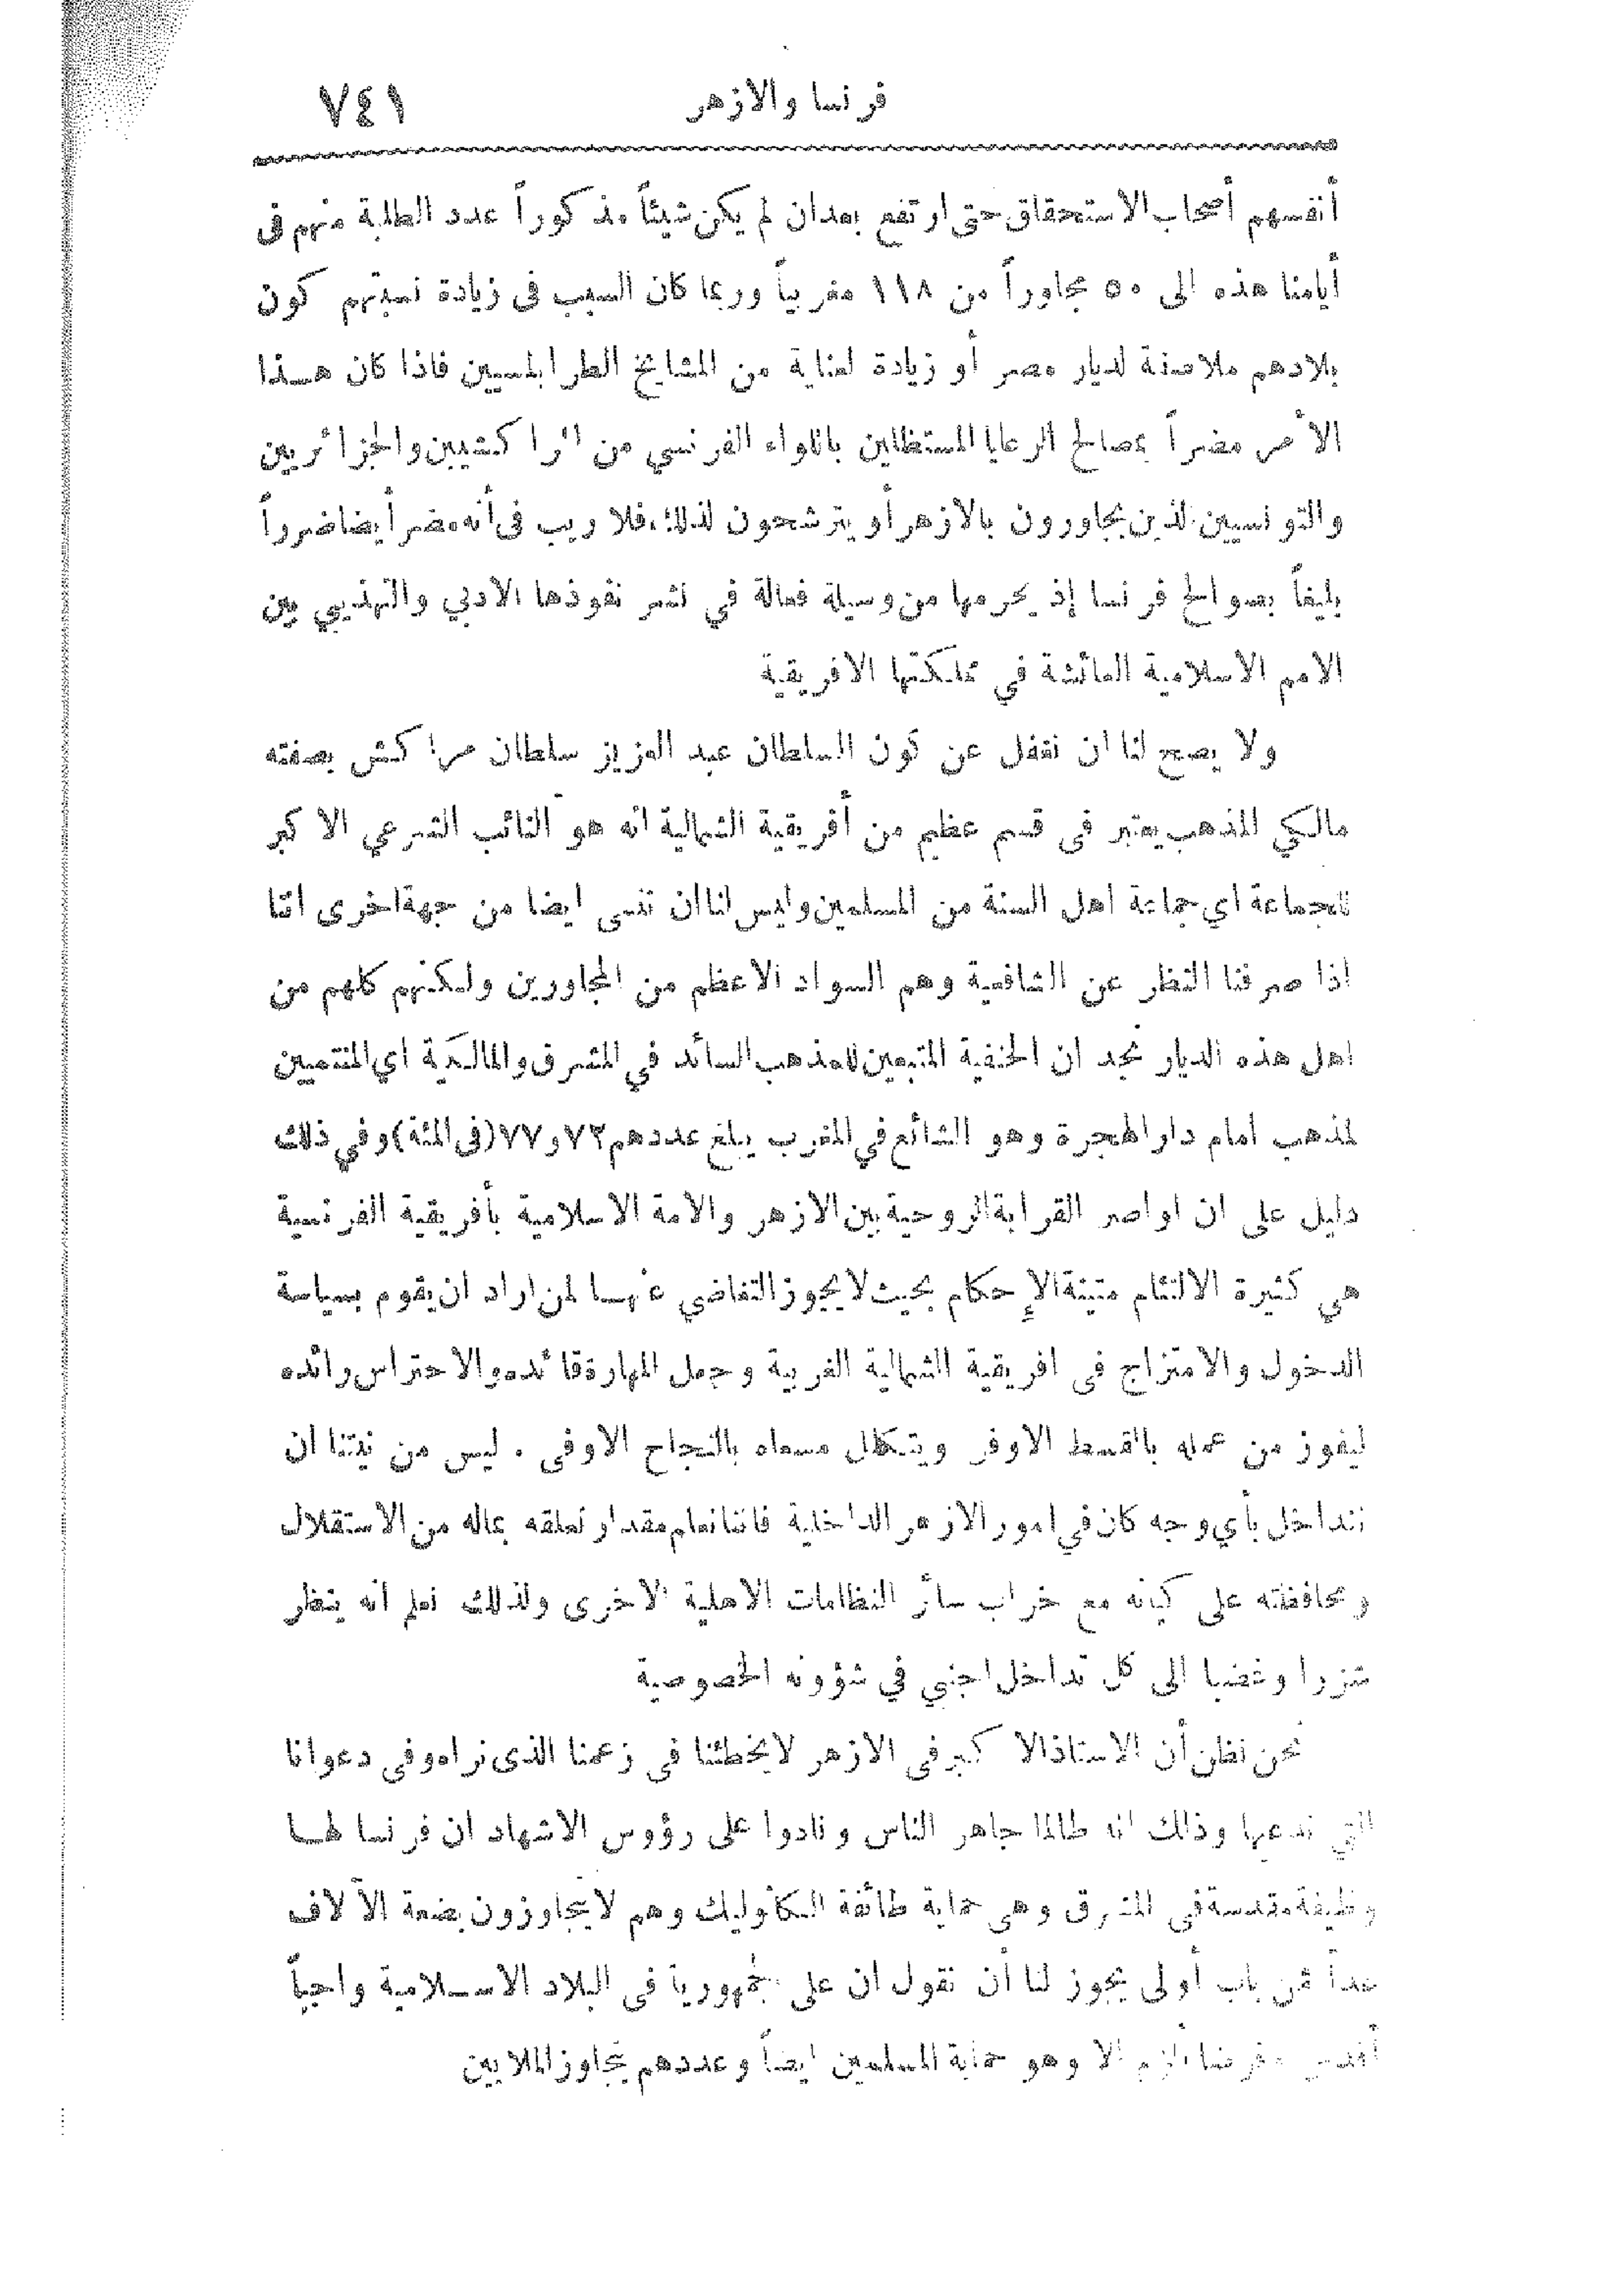 فرنسا والازهر ٧٤١
أنفسهم أصحاب الاستحقاق حتى ارتفع بعد ان لم يكن شيئاً مذكوراً عدد الطلبة منهم فى
أيامنا هذه الى ٥٠ مجاوراً من ١١٨ مغربياً وربما كان السبب فى زيادة نسبتهم كون
بلادهم ملاصقة لديار مصر أو زيادة لعناية من المشايخ الطرابلسيين فاذا كان هذا
الأمر مضراً بمصالح الرعايا المستظلين باللواء الفرنسي من المراكشيين والجزائريين
والتونسيين الذين يجاورون بالازهر أو يترشحون لذلك، فلا ريب فى أنه مضر أيضا ضرراً
بليغاً بصوالح فرنسا إذ يحرمها من وسيلة فعالة في نشر نفوذها الادبي والتهذيبي بين
الامم الاسلامية العائشة في مملكتها الافريقية
ولا يصح لنا ان نغفل عن كون السلطان عبد العزيز سلطان مراكش بصفته
مالكي المذهب يعتبر فى قسم عظيم من أفريقية الشمالية انه هو النائب الشرعي الاكبر
للجماعة اي جماعة اهل السنة من المسلمين وليس لنا ان ننسى ايضا من جهة اخرى اننا
اذا صرفنا النظر عن الشافعية وهم السواد الاعظم من المجاورين ولكنهم كلهم من
اهل هذه الديار نجد ان الحنفية المتبعين للمذهب السائد في المشرق والمالكية اي المنتمين
لمذهب امام دار الهجرة وهو الشائع في المغرب يبلغ عددهم ٧٣ و٧٧ (فى المئة) وفي ذلك
دليل على ان اواصر القرابة الروحية بين الازهر والامة الاسلامية بأفريقية الفرنسية
هي كثيرة الالتئام متينة الإحكام بحيث لا يجوز التغاضي عنها لمن اراد ان يقوم بسياسة
الدخول والامتزاج فى افريقية الشمالية الغربية وجعل المهارة قائده والاحتراس رائده
ليفوز من عمله بالقسط الاوفر ويتكلل مسعاه بالنجاح الاوفى . ليس من نيتنا ان
نتداخل بأي وجه كان في امور الازهر الداخلية فاننا نعلم مقدار تعلقه بماله من الاستقلال
ومحافظته على كيانه مع خراب سائر النظامات الاهلية الاخرى ولذلك نعلم انه ينظر
شزرا وغضبا الى كل تداخل اجنبي في شؤونه الخصوصية
نحن نظن أن الاستاذ الاكبر فى الازهر لا يخطئنا في زعمنا الذى نراه وفى دعوانا
التي ندعيها وذلك انه طالما جاهر الناس ونادوا على رؤوس الاشهاد ان فرنسا لها
وظيفة مقدسة فى الشرق وهى حماية طائفة الكاثوليك وهم لا يتجاوزون بضعة الآلاف
عداً فمن باب أولى يجوز لنا أن نقول ان على جمهوريتنا فى البلاد الاسلامية واجباً
أقدس وفرضا الزم الا وهو حماية المسلمين ايضاً وعددهم يتجاوز الملايين